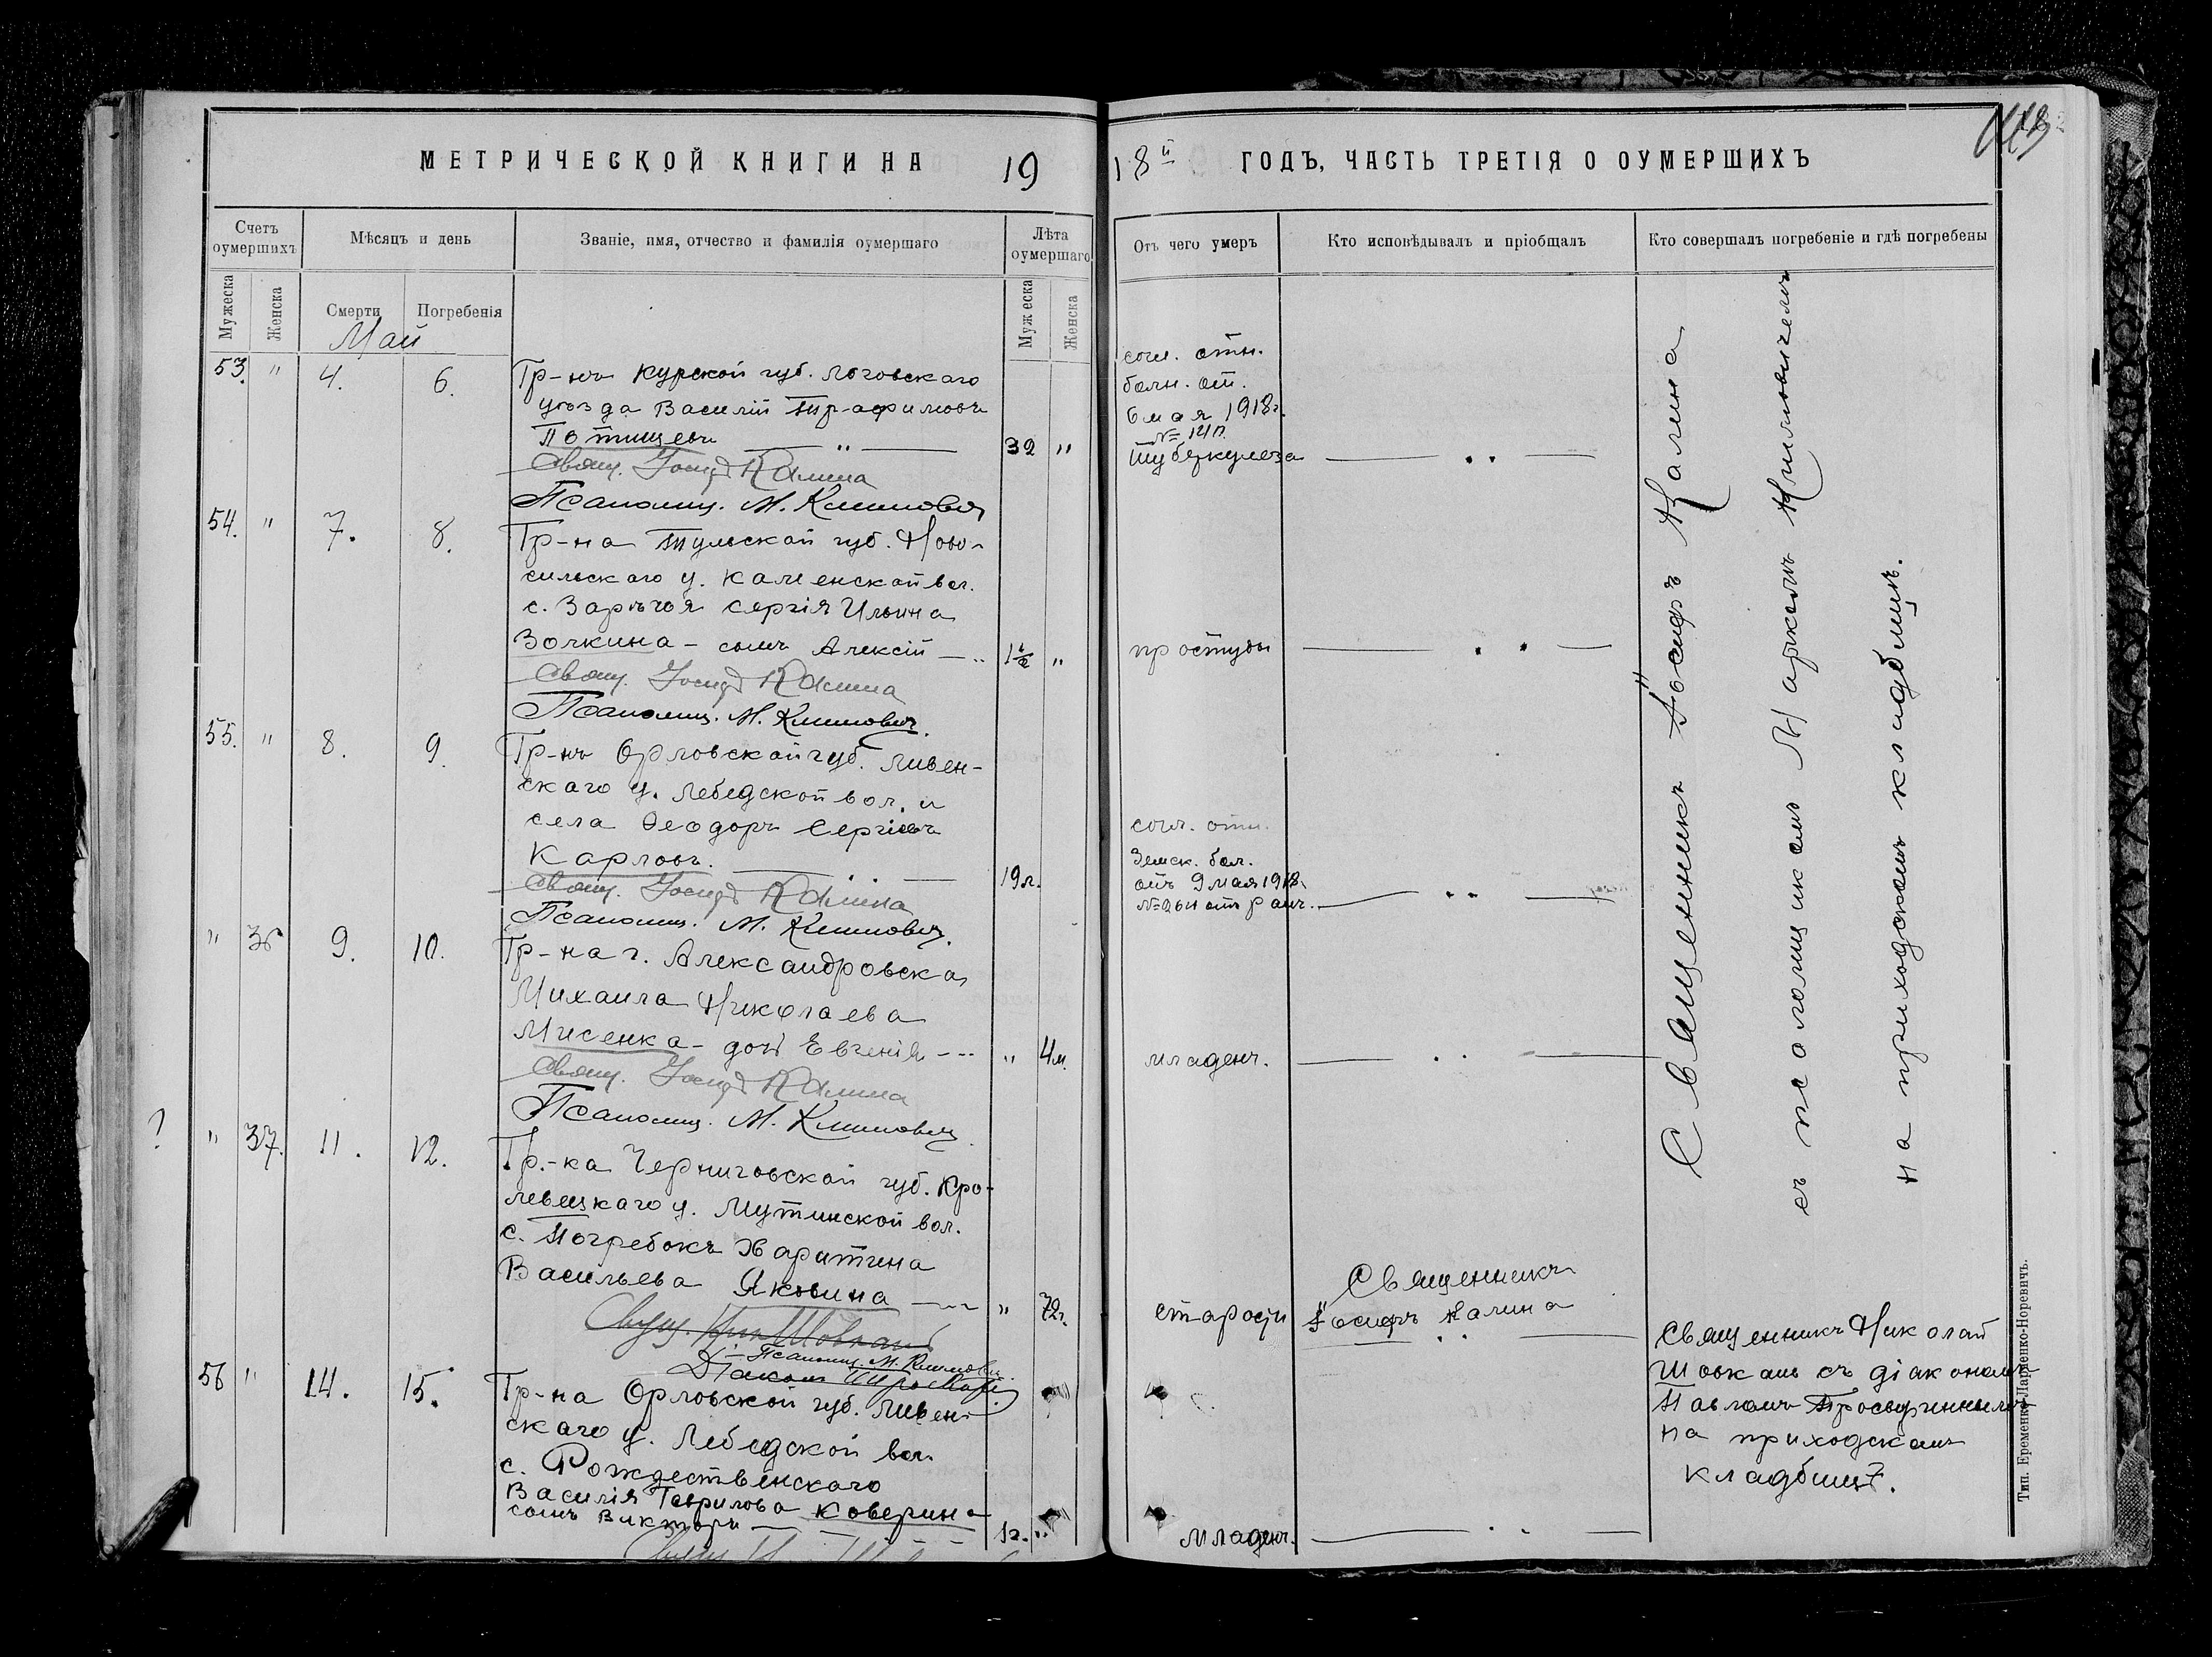 МЕТРИЧЕСКОЙ КНИГИ НА 19
Счетъ оумершихъ
Мѣсяцъ и день
Званіе, имя, отчество и фамилія оумершаго
Лѣта оумершаго
Мужеска
Женска
Смерти
Погребенія
Мужеска
Женска
Май
53. " 4. 6.
Гр-нъ Курской губ. Льговскаго
уѣзда Василій
Потищевъ — " —
32 "
Свящ. Іосифъ Калина
Псаломщ. М. Климовичъ
54. " 7. 8.
Гр-на Тульской губ. Ново-
сильскаго у. Каменской вол.
с. Зарѣчья Сергія Ильина
Зочкина - сынъ Алексій —
1½ "
Свящ. Іосифъ Калина
Псаломщ. М. Климовичъ
55. " 8. 9.
Гр-нъ Орловской губ. Ливен-
скаго у. Лебедской вол. и
села Ѳеодоръ Сергіевъ
Карловъ.
19 л.
Свящ. Іосифъ Калина
Псаломщ. М. Климовичъ
" 36 9. 10.
Гр-на г. Александровска
Михаила Николаева
Мисенка - дочь Евгенія
" 4 м.
Свящ. Іосифъ Калина
Псаломщ. М. Климовичъ
? " 37. 11. 12.
Гр.-ка Черниговской губ. Кро-
левецкаго у. Мутинской вол.
с. Погребокъ Харитина
Васильева Яковина
" 72 г.
Свящ. Ник Шовкань
Псаломщ. М. Климович
Діаконъ
56 " 14. 15.
Гр-на Орловской губ. Ливен-
скаго у. Лебедской вол.
с. Рождественскаго
Василія Гаврилова Коверина
сынъ Викторъ
1 г. "
18й ГОДЪ, ЧАСТЬ ТРЕТІЯ О ОУМЕРШИХЪ
Отъ чего умеръ
Кто исповѣдывалъ и пріобщалъ
Кто совершалъ погребеніе и гдѣ погребены
согл. отн.
болн. от.
6 мая 1918 г.
туберкулеза
простуды
согл. отн.
Земск. бол.
отъ 9 мая 1918
младенч.
старости
Священникъ
Іосифъ Калина
младенч.
Священникъ Іосифъ Калина
съ псаломщикомъ Маркомъ Климовичемъ
на приходскомъ кладбищѣ.
Священникъ Николай
Шовкань съ діакономъ
Павломъ
на приходскомъ
кладбищѣ.
Тип. Еременко-Ларменко-Норевичъ.